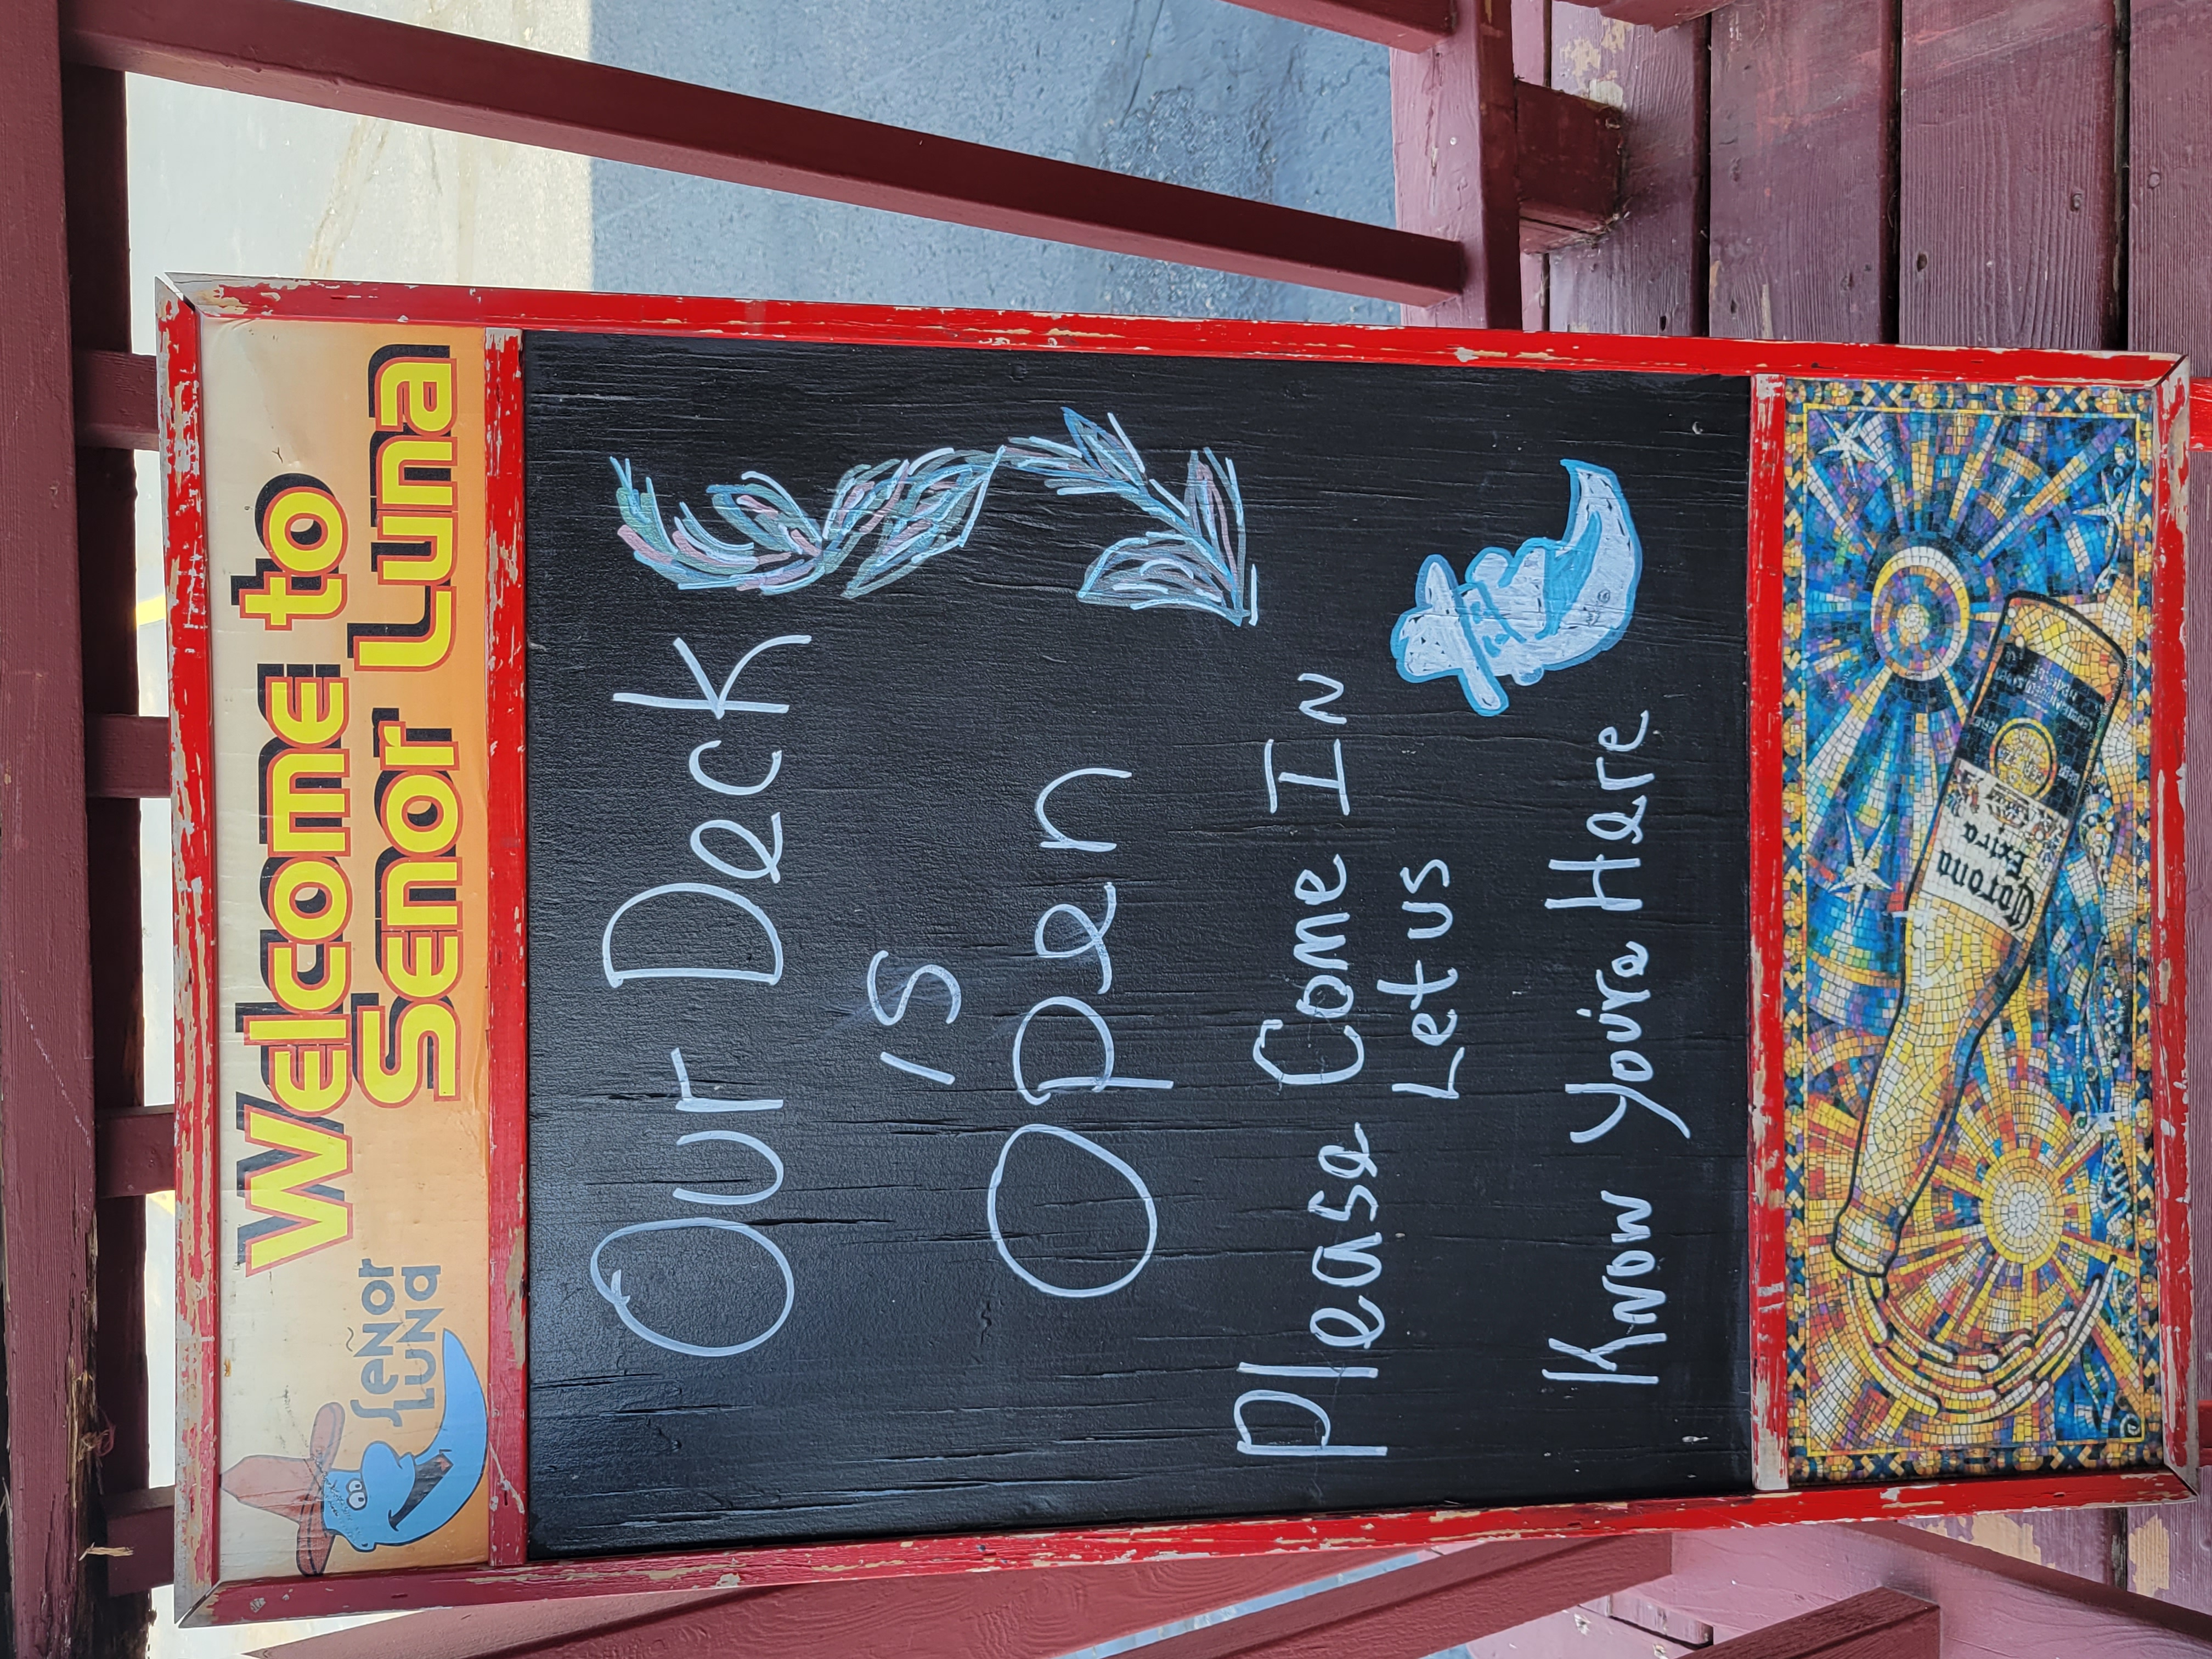 Welcome to
Senor Luna
Señor
Luna
Our Deck
is
Open
please Come In
Let us
Know You're Here
Corona
Extra